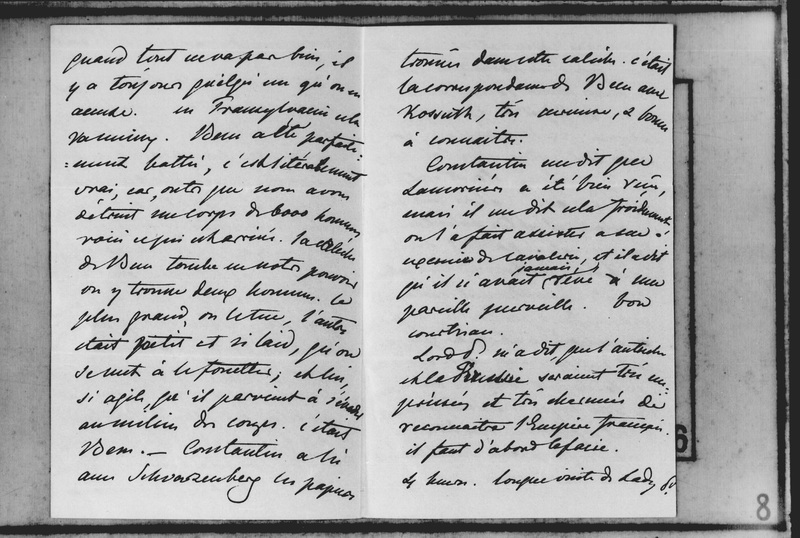 quand tout ne va pas bien, il
y a toujours quelqu'un qu'on en
accuse. en Transylvanie cela
va mieux. Bem a été parfaite-
=ment battu, c'est littéralement
vrai, car, outre que nous avons
détruit un corps de 6000 hommes
voici ce qui est arrivé. la calèche
de Bem tombe en notre pouvoir
on y trouve deux hommes. le
plus grand, on le tue, l'autre
était petit et si laid, qu'on
se mit à le fouetter; et lui,
si agile, qu'il parvient à s'évader
au milieu des coups. c'était
Bem. — Constantin a lu
avec Schwarzenberg les papiers
trouvés dans cette calèche. c'était
la correspondance de Bem avec
Kossuth, très curieuse, & bonne
à connaître.
Constantin me dit que
Lamoricière a été bien reçu,
mais il me dit cela froidement
on l'a fait assister à un
exercice de cavalerie, et il a dit
qu'il n'avait jamais rêvé à une
pareille merveille. bon
courtisan.
Lord d. m'a dit, que l'autriche
et la Prussie seraient très em-
pressées et très charmées de
reconnaitre l'Empire français.
il faut d'abord le faire.
4 heures. longue visite de Lady